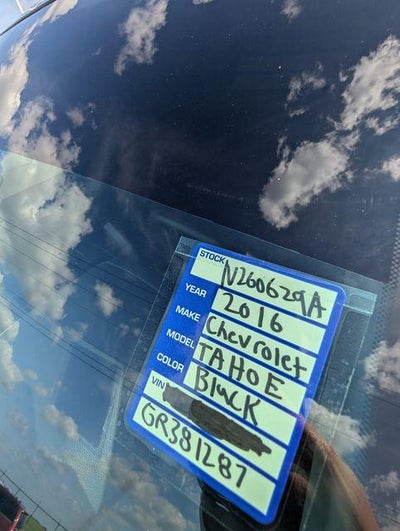 STOCK N260629A
YEAR 2016
MAKE Chevrolet
MODEL TAHOE
COLOR Black
VIN
GR381287